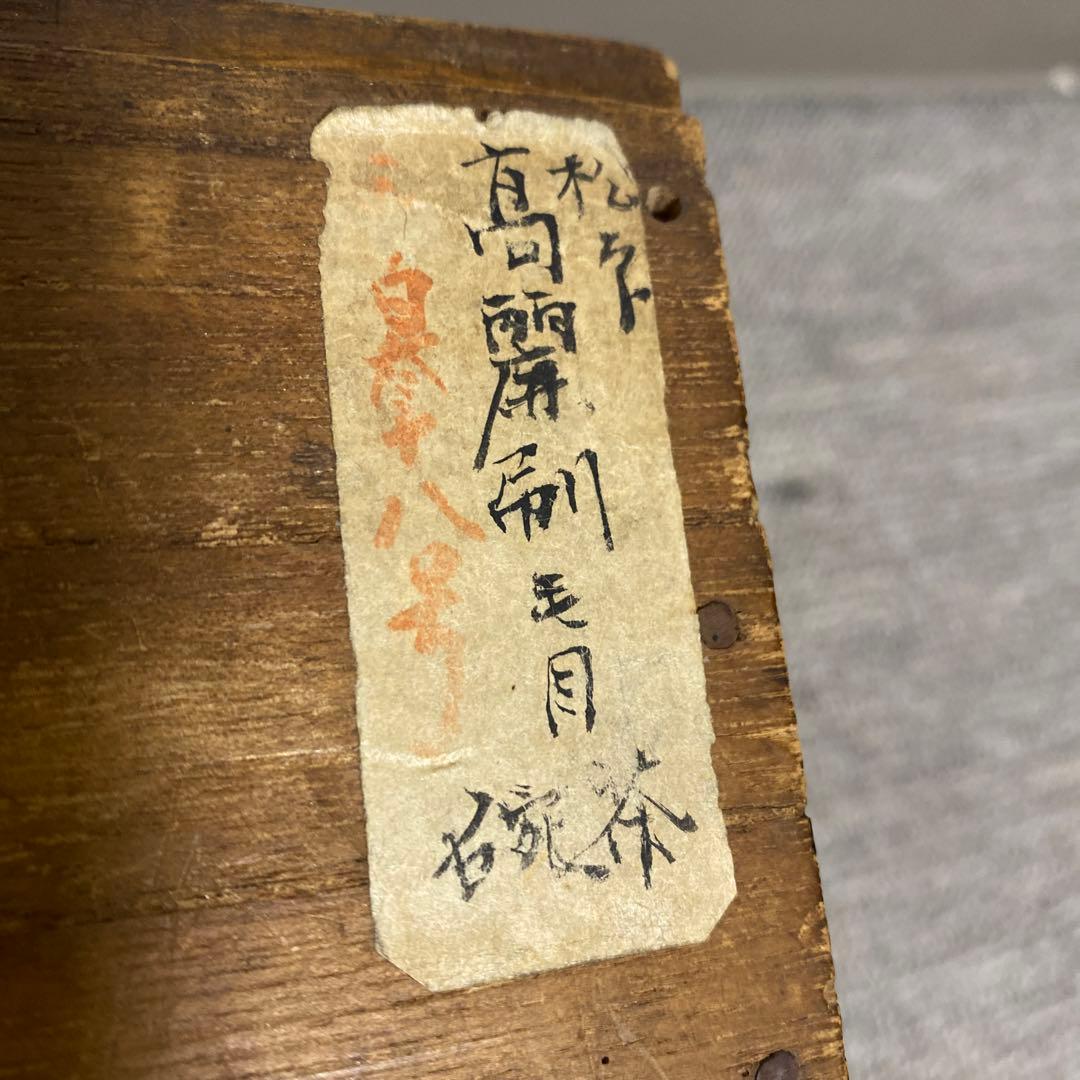 松
高麗刷毛目
茶碗
十八号